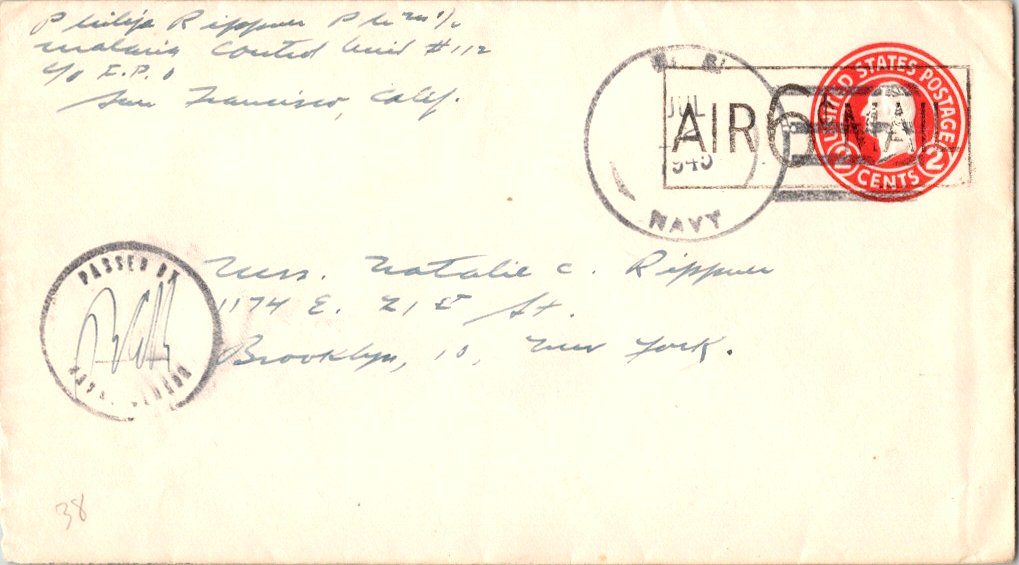 Philip Rippner PhM 1/c
Malaria Control Unit #112
c/o F.P.O
San Francisco, Calif.
NAVY
JUL
2
1945
AIR 6¢ MAIL
UNITED STATES POSTAGE
2 CENTS 2
PASSED BY
NAVAL CENSOR
Mrs. Natalie C. Rippner
1174 E. 21 St.
Brooklyn, 10, New York.
38